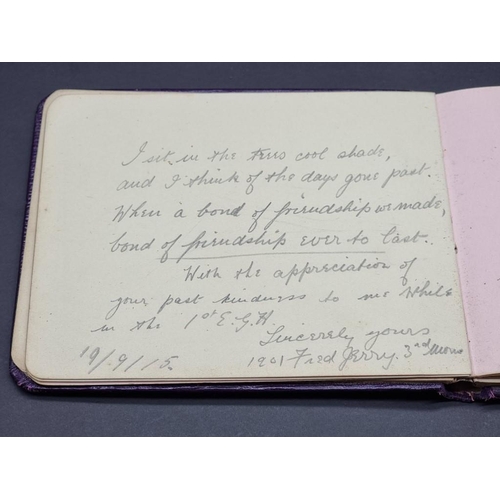 I sit in the trees cool shade,
and I think of the days gone past.
When a bond of friendship we made,
bond of friendship ever to last.
With the appreciation of
your past kindness to me while
in the 1st E.G.H.
Sincerely yours
19/9/15. 1901 Fred Jerry. 3rd